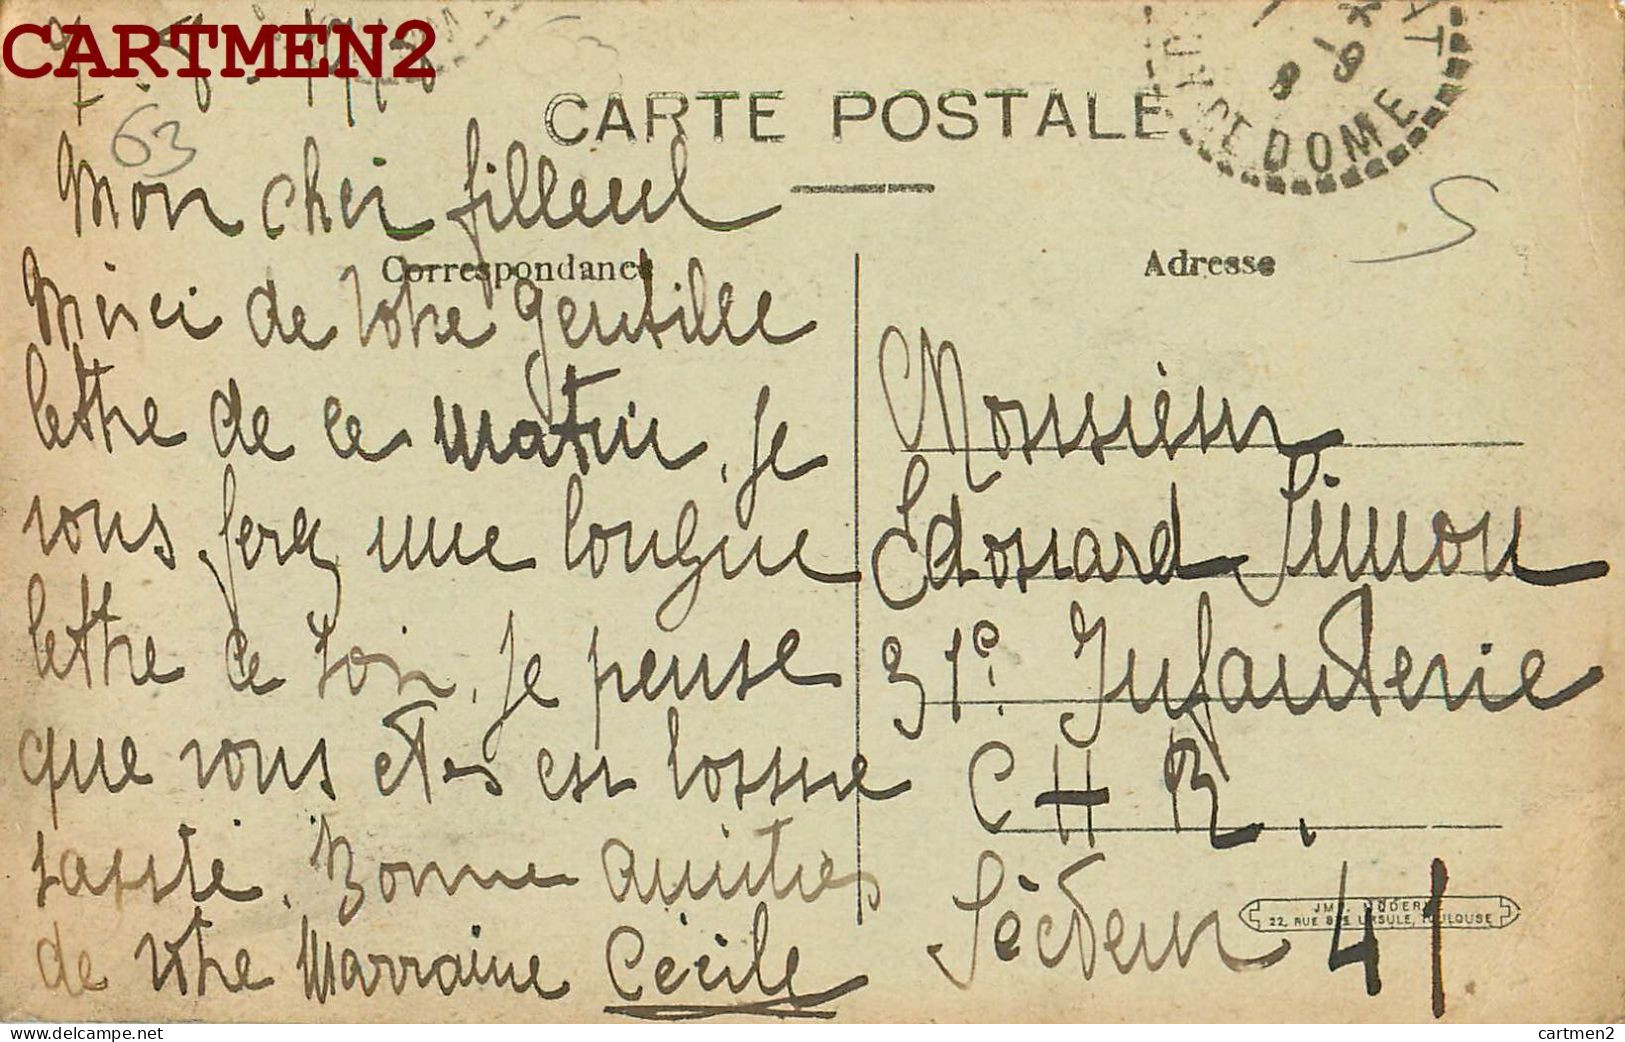 CARTMEN2
63
CARTE POSTALE
DOME
Correspondance
Adresse
S
Mon cher filleul
Merci de votre gentille
lettre de ce matin, je
vous ferai une longue
lettre ce soir, je pense
que vous êtes en bonne
santé. Bonne amitiés
de votre Marraine Cécile
Monsieur
Edouard Simon
31e. Infanterie
C H R.
Sècteur 41
IMP. MODERNE
22, RUE STE URSULE, TOULOUSE
cartmen2